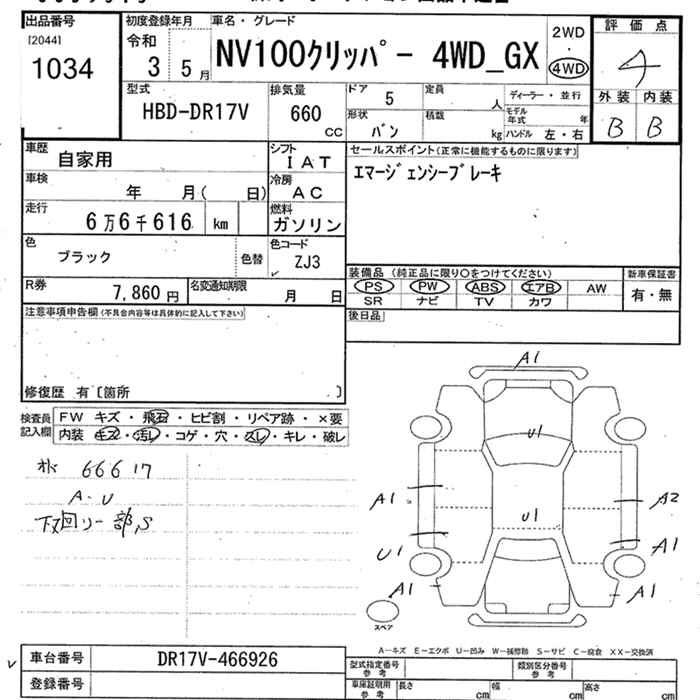 出品番号
[2044]
1034
初度登録年月
令和
3 5月
車名・グレード
NV100クリッパー 4WD_GX
2WD
4WD
評価点
4
外装 内装
B B
型式
HBD-DR17V
排気量
660
CC
ドア 5
形状 バン
定員 人
積載 kg
ディーラー・並行
モデル年式 年
ハンドル 左・右
車歴
自家用
シフト
IAT
車検
年 月( 日)
冷房
AC
走行
6万6千616 km
燃料
ガソリン
色
ブラック
色替
色コード
ZJ3
R券
7,860円
名変通知期限
月 日
セールスポイント(正常に機能するものに限ります)
エマージェンシーブレーキ
装備品 (純正品に限り○をつけてください)
新車保証書
PS PW ABS エアB AW
有・無
SR ナビ TV カワ
後日品
注意事項申告欄(不具合内容等は具体的に記入して下さい)
修復歴 有〔箇所 〕
検査員
記入欄
FW キズ・飛石・ヒビ割・リペア跡・×要
内装 キズ・汚レ・コゲ・穴・スレ・キレ・破レ
66617
A・U
下回り一部S
A1
U1
A1
A2
U1
U1
A1
A1
A1
スペア
A-キズ E-エクボ U-凹み W-補修跡 S-サビ C-腐食 XX-交換済
車台番号
DR17V-466926
登録番号
型式指定番号
参考
類別区分番号
参考
車庫証明用
参考
長さ cm
幅 cm
高さ cm